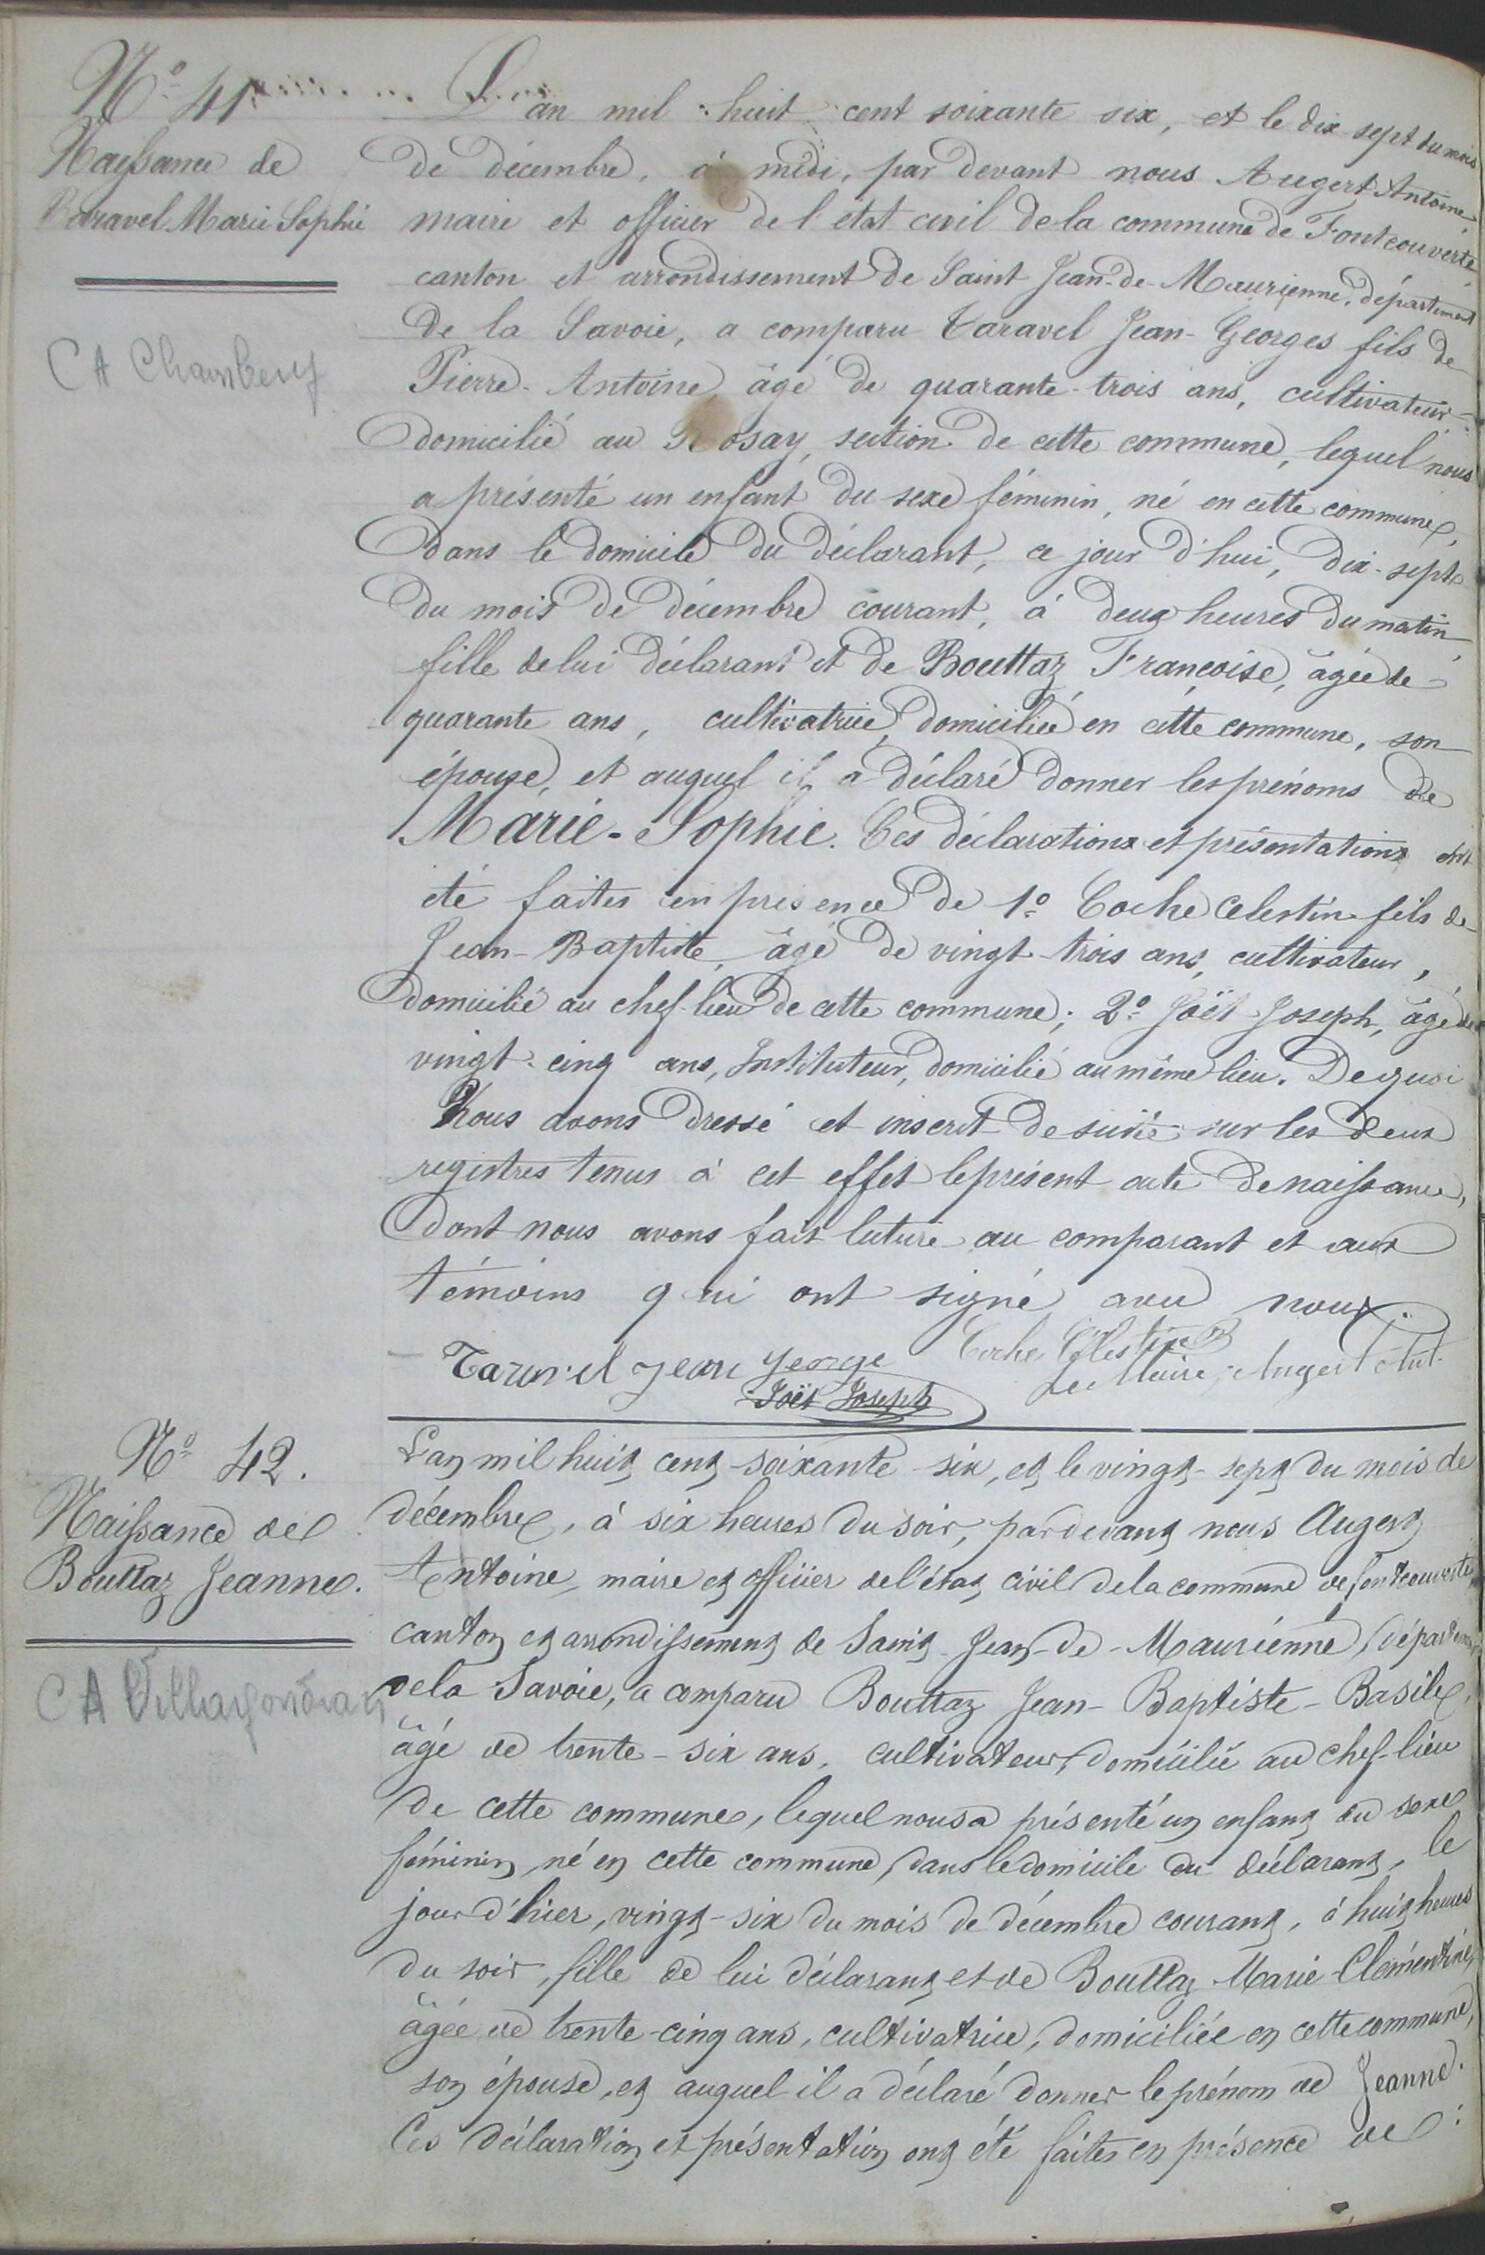 N° 41
Naissance de
Taravel Marie Sophie
CA Chambery
L'an mil huit cent soixante six, et le dix sept du mois
de décembre, à midi, par devant nous Augert Antoine
maire et officier de l'état civil de la commune de Fontcouverte
canton et arrondissement de Saint Jean-de-Maurienne, département
de la Savoie, a comparu Taravel Jean-Georges fils de
Pierre-Antoine, âgé de quarante-trois ans, cultivateur,
domicilié au Rosay, section de cette commune, lequel nous
a présenté un enfant du sexe féminin, né en cette commune,
dans le domicile du déclarant, ce jour d'hui, dix-sept
du mois de décembre courant, à deux heures du matin,
fille de lui déclarant et de Bouttaz Françoise, âgée de
quarante ans, cultivatrice, domiciliée en cette commune, son
épouse, et auquel il a déclaré donner les prénoms de
Marie-Sophie. Ces déclarations et présentations ont
été faites en présence de 1° Coche Celestin fils de
Jean-Baptiste, âgé de vingt-trois ans, cultivateur,
domicilié au chef-lieu de cette commune; 2° Joët Joseph, âgé de
vingt-cinq ans, Instituteur, domicilié au même lieu. De quoi
Nous avons dressé et inscrit de suite sur les deux
registres tenus à cet effet le présent acte de naissance,
dont nous avons fait lecture au comparant et aux
témoins qui ont signé avec nous.
Taravel jean george Coche Célestin
Joët Joseph Le Maire, Augert Ant.
N° 42.
Naissance de
Bouttaz Jeanne.
CA Villargondran
L'an mil huit cent soixante-six, et le vingt-sept du mois de
décembre, à six heures du soir, pardevant nous Augert
Antoine, maire et officier de l'état civil de la commune de fontcouverte,
canton et arrondissement de Saint-Jean-de-Maurienne, département
de la Savoie, a comparu Bouttaz Jean-Baptiste-Basile,
âgé de trente-six ans, cultivateur, domicilié au chef-lieu
de cette commune, lequel nous a présenté un enfant du sexe
féminin, né en cette commune, dans le domicile du déclarant, le
jour d'hier, vingt-six du mois de décembre courant, à huit heures
du soir, fille de lui déclarant et de Bouttaz Marie Clémentine,
âgée de trente-cinq ans, cultivatrice, domiciliée en cette commune,
son épouse, et auquel il a déclaré donner le prénom de Jeanne.
Ces déclaration et présentation ont été faites en présence de: